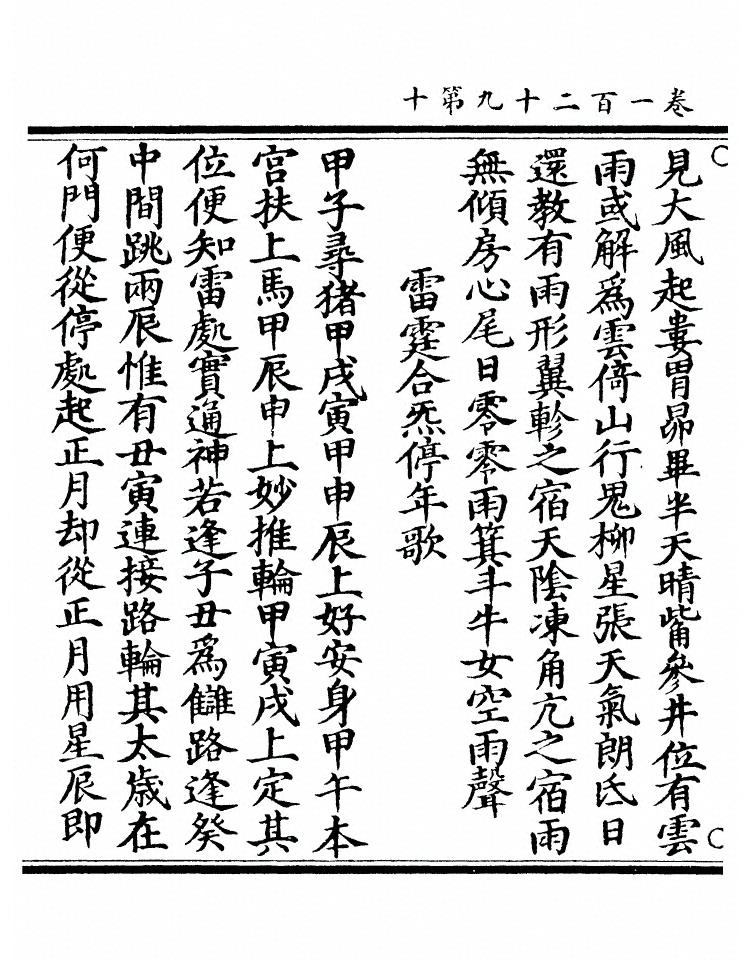 卷一百二十九第十
見大風起婁胃昴畢半天晴觜參井位有雲
雨或解爲雲倚山行鬼柳星張天氣朗氐日
還教有雨形翼軫之宿天陰凍角亢之宿雨
無傾房心尾日零零雨箕斗牛女空雨聲
雷霆合炁停年歌
甲子尋猪甲戌寅甲申辰上好安身甲午本
宮扶上馬甲辰申上妙推輪甲寅戌上定其
位便知雷處實通神若逢子丑爲讎路逢癸
中間跳兩辰惟有丑寅連接路輪其太歲在
何門便從停處起正月却從正月用星辰即